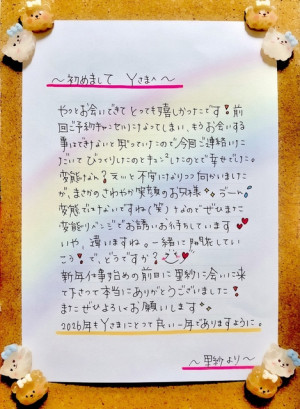 ～初めまして Yさまへ～
やっとお会いできて とっても嬉しかったです❣前
回ご予約キャンセルになってしまい、もうお会いする
事はできないと思っていたので今回ご連絡いた
だいて びっくりしたのとキュンとしたのとで幸せでした。
変態なん？えぃと不安になりつつ向かいました
が、まさかのさわやか笑顔のお兄様
変態ではないですね(笑)なのでぜひまた
変態リベンジでお誘いお待ちしています
いや、違いますね。一緒に開発してい
こう❣で、どうですか？
新年仕事始めの前日に里紗に会いに来
て下さって本当にありがとうございました❣
またぜひよろしくお願いします
2026年もYさまにとって良い一年でありますように。
～里紗より～